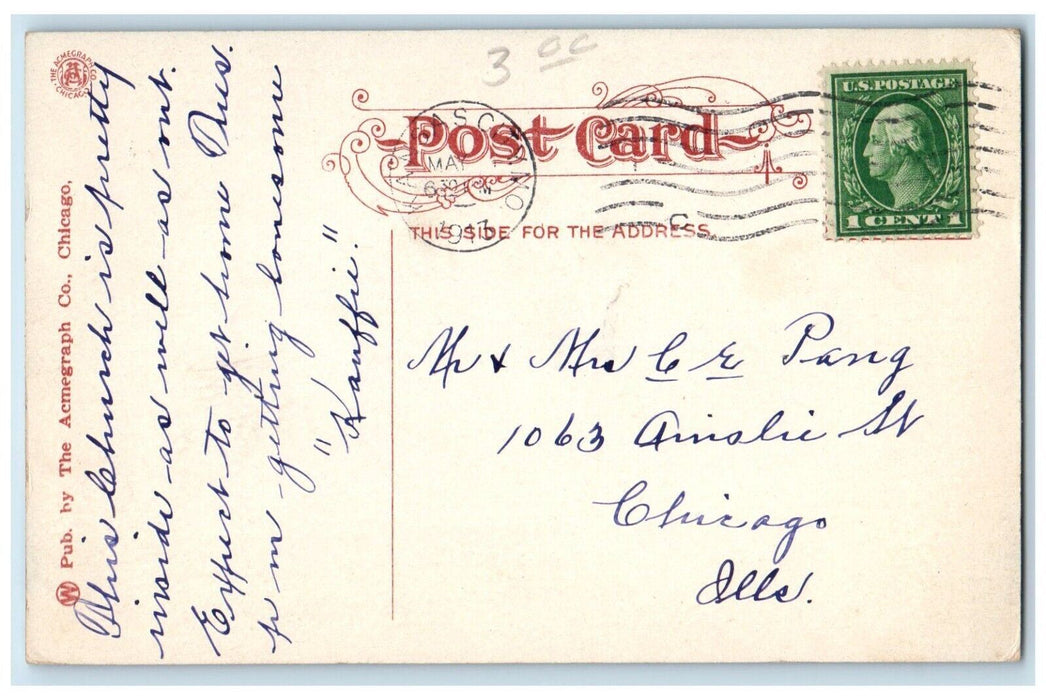 3 00
THE ACMEGRAPH CO.
CHICAGO
W Pub. by The Acmegraph Co., Chicago.
Post Card
THIS SIDE FOR THE ADDRESS.
U.S. POSTAGE
1 CENT 1
KANSAS CITY, MO.
MAY
6 30 PM
1917
C
This Church is pretty
inside as well as out.
Expect to get some Dues.
p m - getting lonesome
"Kauffie."
Mr & Mrs C E Pang
1063 Ainslie St
Chicago
Ills.